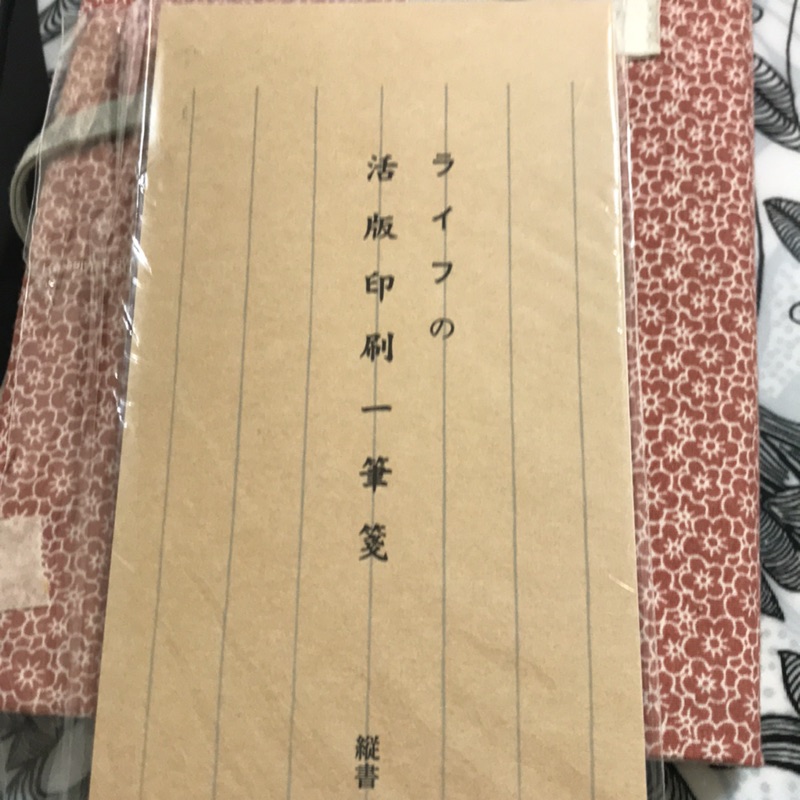 ライフの
活版印刷一筆箋
縦書